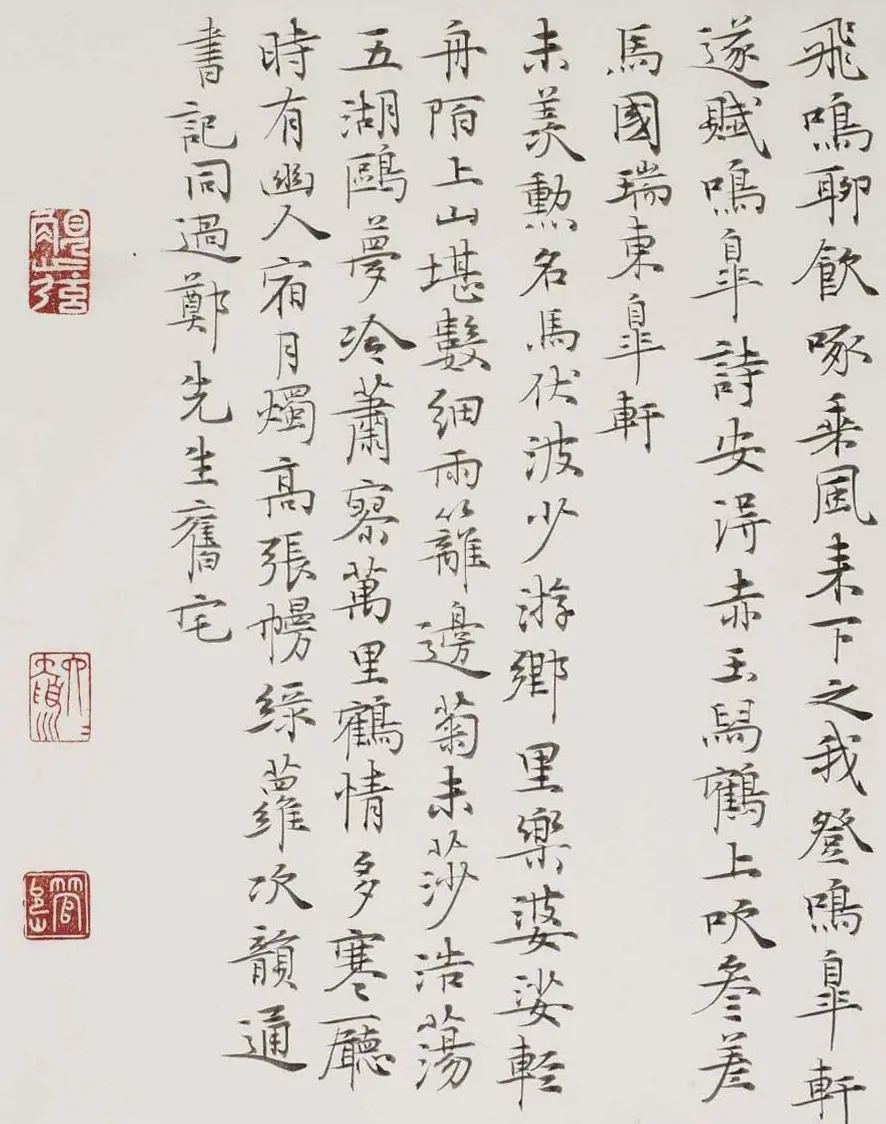 飛鳴聊飲啄乘風來下之我登鳴皐軒
遂賦鳴皐詩安得赤玉舄鶴上吹參差
馬國瑞東皐軒
未羨勲名馬伏波少游鄉里樂婆娑輕
舟陌上山堪數細雨籬邊菊未莎浩蕩
五湖鷗夢冷蕭寥萬里鶴情多寒廳
時有幽人宿月燭高張幔綠蘿次韻通
書記同過鄭先生舊宅